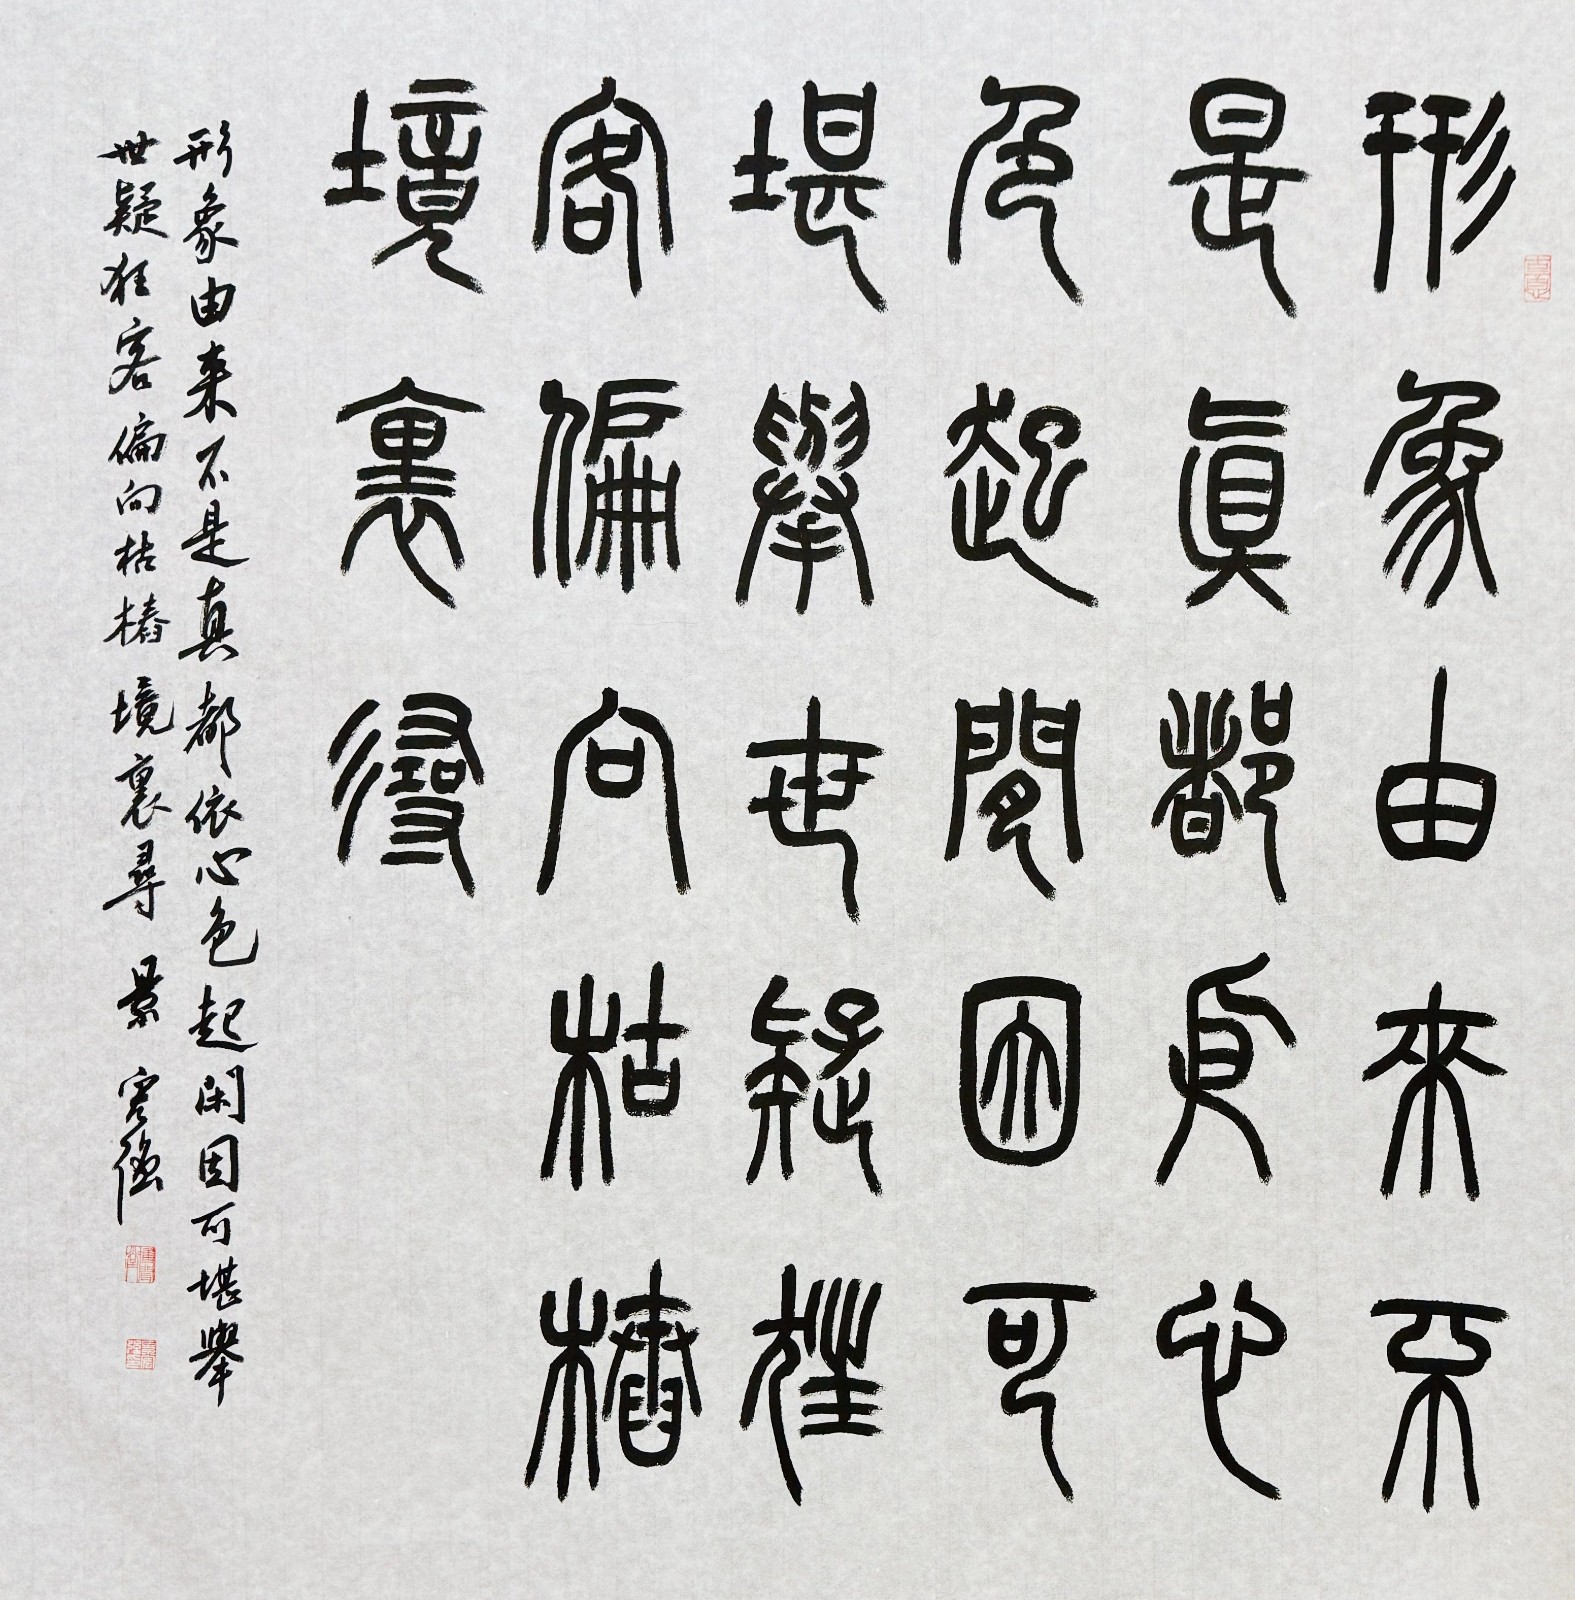 形象由來不
是眞都依心
色起閒因可
堪舉世疑狂
客偏向枯樁
境裏尋
形象由来不是真都依心色起闲因可堪舉
世疑狂客偏向枯樁境裏尋 景